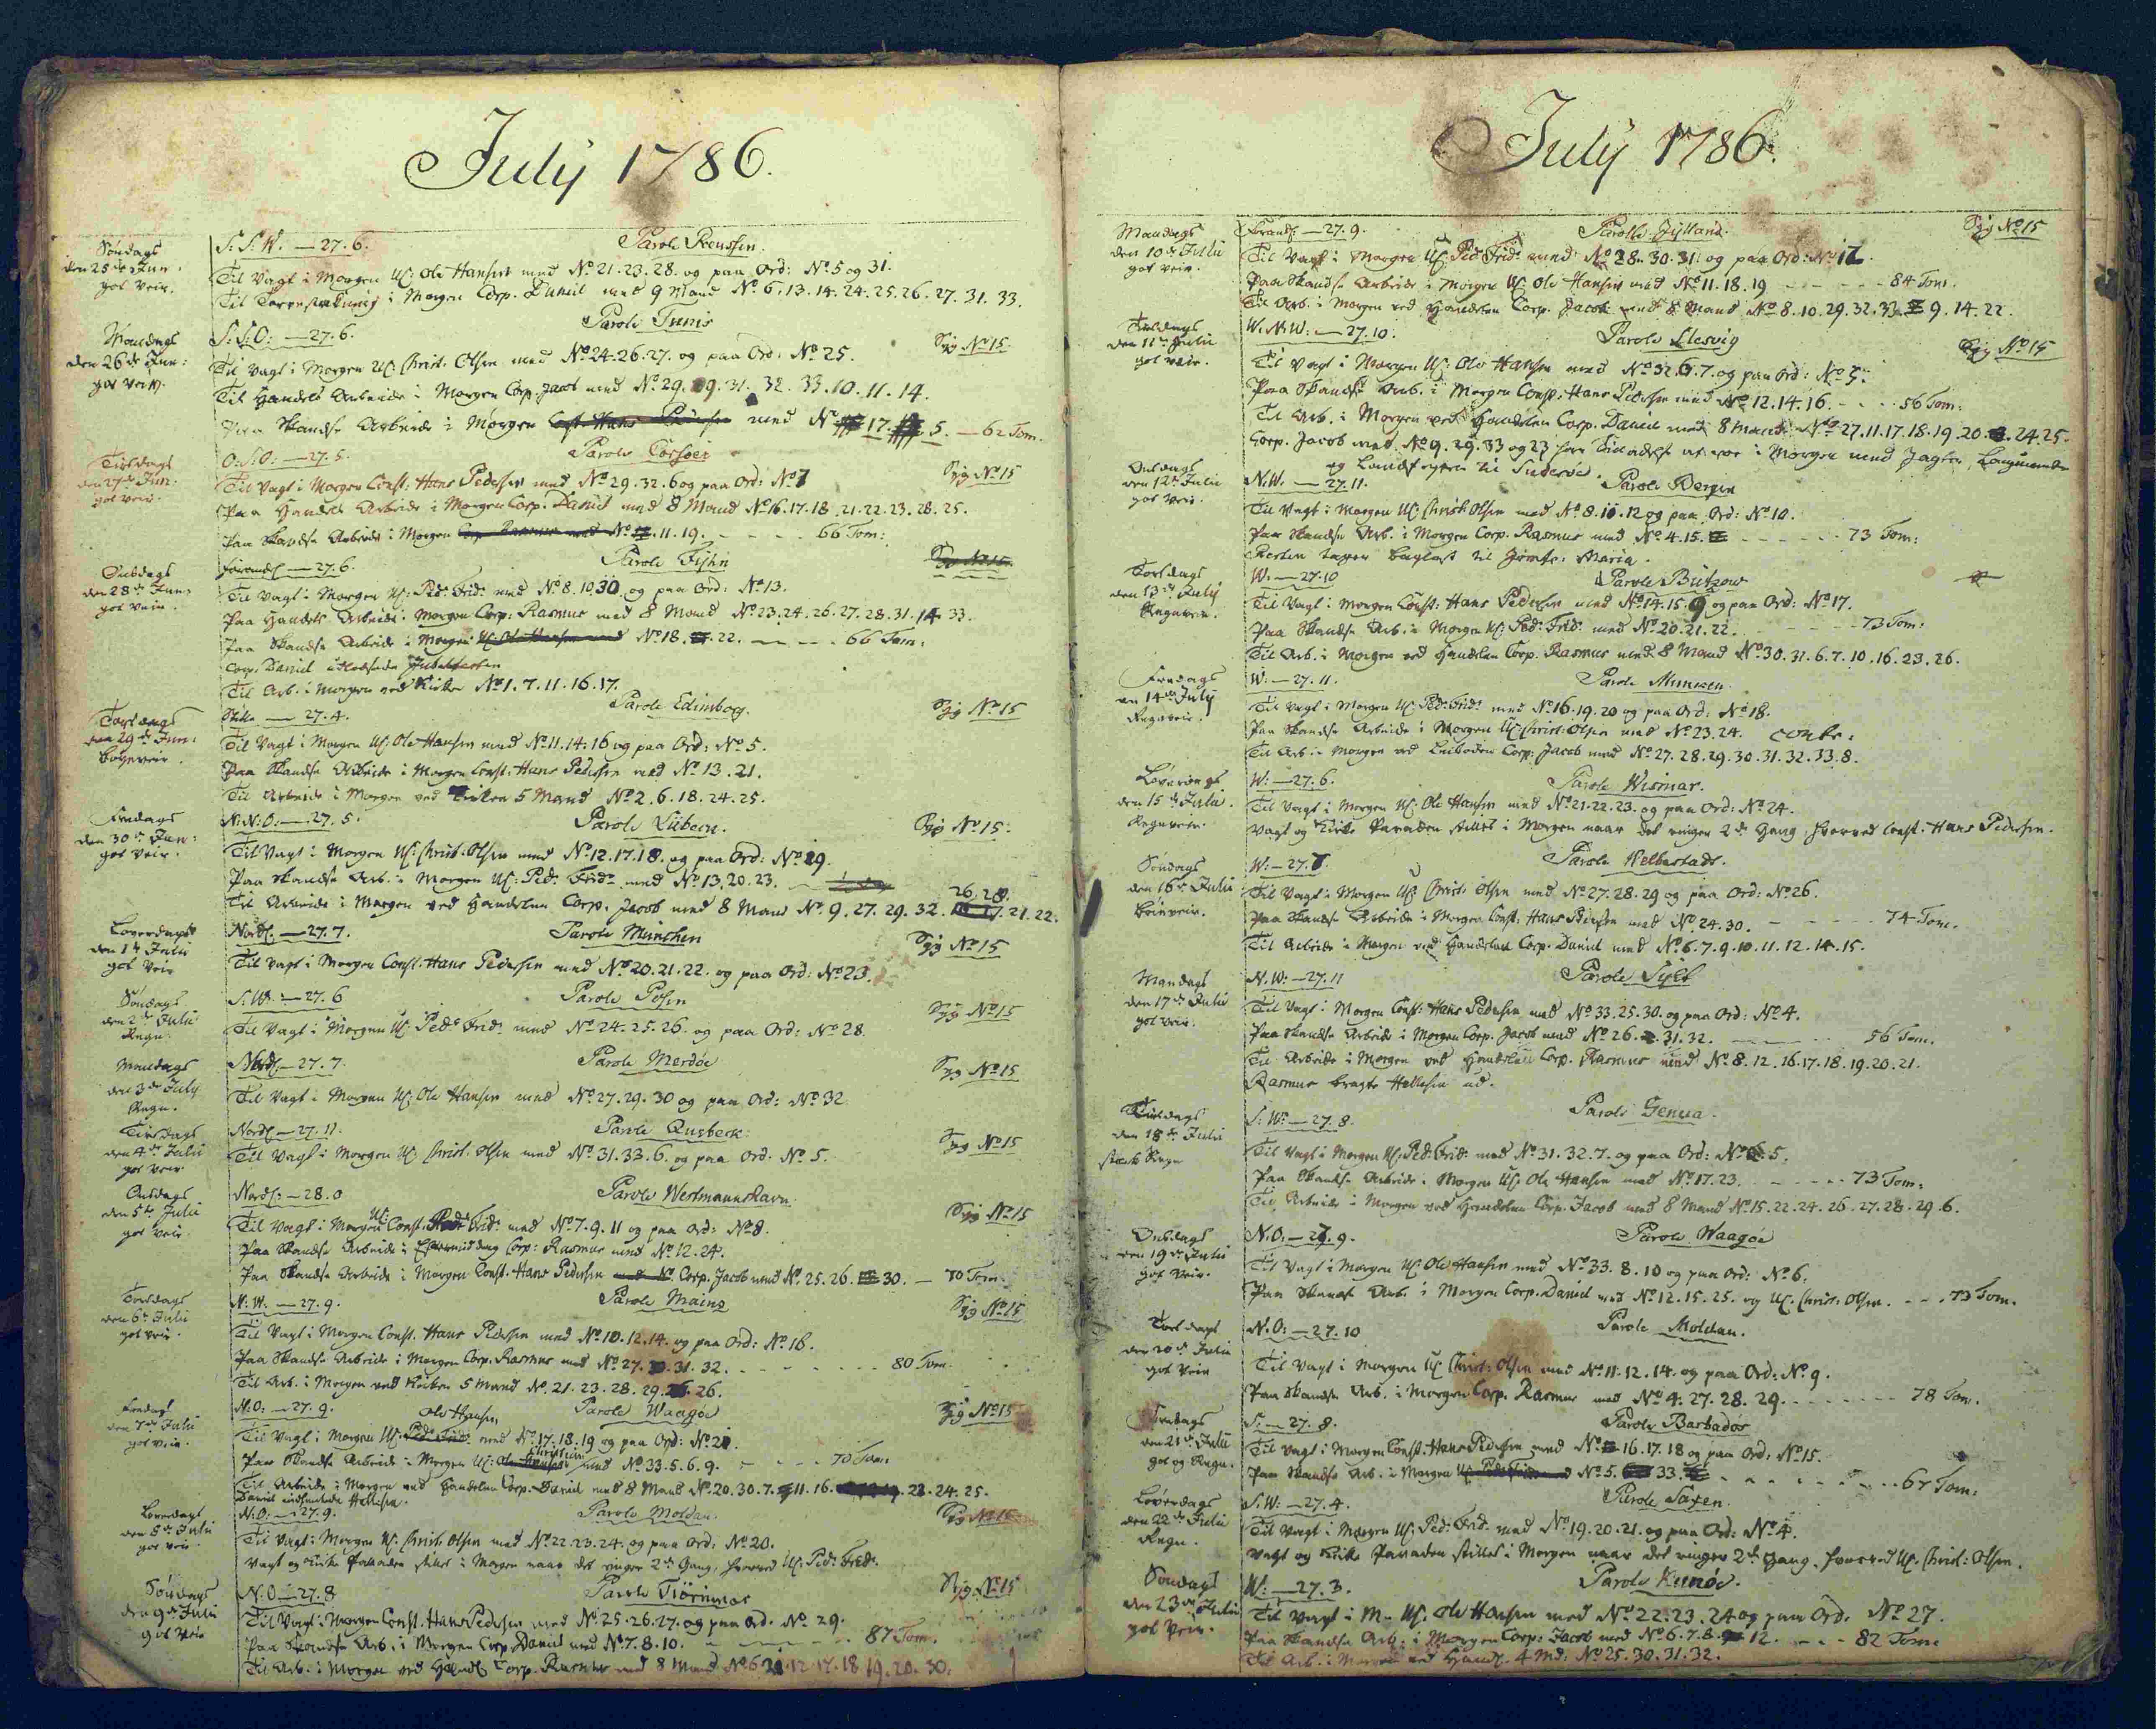 July 1786.
Søndags den 25de Jun: got Veir.
S: S: W. — 27. 6. Parole Reussen.
Til Vagt i Morgen UC. Ole Hansen med No 21. 23. 28. og paa Ord: No 5 og 31.
Til Torveskiæring i Morgen Corp. Daniel med 9 Mand No 6. 13. 14. 24. 25. 26. 27. 31. 33.
Mandags den 26de Jun: got Veir.
S: S: O: — 27. 6. Parole Tunis Syg No 15.
Til Vagt i Morgen UC. Christ. Olsen med No 24. 26. 27. og paa Ord: No 25.
Til Handels Arbeide i Morgen Corp. Jacob med No 29. 31. 32. 33. 10. 11. 14.
Paa Skandse Arbeide i Morgen med No 17. 5. — 62 Tom.
Tirsdags den 27de Jun: got Veir.
O: S: O: — 27. 5. Parole Corsoer Syg No 15
Til Vagt i Morgen Const: Hans Pedersen med No 29. 32. 6 og paa Ord: No 7
Paa Handels Arbeide i Morgen Corp. Daniel med 8 Mand No 16. 17. 18. 21. 22. 23. 28. 25.
Paa Skandse Arbeide i Morgen 11. 19. — 66 Tom:
Onsdags den 28de Jun: got Veir.
— 27. 6. Parole Syg No 15
Til Vagt i Morgen UC. Ped: Frid: med No 8. 10 30. og paa Ord: No 13.
Paa Handels Arbeide i Morgen Corp: Rasmus med 8 Mand No 23. 24. 26. 27. 28. 31. 14 33.
Paa Skandse Arbeide i Morgen UC. Ole Hansen med No 18. 22. — 66 Tom:
Corp. Daniel
Til Arb. i Morgen ved Kirken No 1. 7. 11. 16. 17.
Torsdags den 29de Jun:
Stille — 27. 4. Parole Edimborg. Syg No 15
Til Vagt i Morgen UC. Ole Hansen med No 11. 14. 16 og paa Ord: No 5.
Paa Skandse Arbeide i Morgen Const: Hans Pedersen med No 13. 21.
Til Arbeide i Morgen ved Kirken 5 Mand No 2. 6. 18. 24. 25.
Fredags den 30te Jun: got Veir.
N: N: O: — 27. 5. Parole Lübecn. Syg No 15.
Til Vagt i Morgen UC. Christ. Olsen med No 12. 17. 18. og paa Ord: No 19.
Paa Skandse Arb. i Morgen UC. Ped: Frid: med No 13. 20. 23.
26. 28.
Til Arbeide i Morgen ved Handelen Corp. Jacob med 8 Mand No. 9. 27. 29. 32. 21. 22.
Løverdags den 1te Julii got Veir
Nordl. — 27. 7. Parole Münchén Syg No 15
Til Vagt i Morgen Const: Hans Pedersen med No 20. 21. 22. og paa Ord: No 23.
Søndags den 2de Julii Regn.
S. W: — 27. 6 Parole Posen Syg No 15
Til Vagt i Morgen UC. Ped: Frid: med No 24. 25. 26. og paa Ord: No 28.
Mandags den 3de July Regn.
Nordl. — 27. 7. Parole Merdøe Syg No 15
Til Vagt i Morgen UC. Ole Hansen med No 27. 29. 30 og paa Ord: No 32.
Tirsdags den 4de Julii got Veir
Nordl. — 27. 11. Parole Qusbeck Syg No 15
Til Vagt i Morgen UC. Christ. Olsen med No 31. 33. 6. og paa Ord. No 5.
Onsdags den 5te Julii got Veir
Nordl: — 28. 0 Parole Westmannshavn. Syg No 15
Til Vagt i Morgen UC. Ped: Frid: med No 7. 9. 11 og paa Ord: No 8.
Paa Skandse Arbeide i Eftermiddag Corp: Rasmus med No 12. 24.
Paa Skandse Arbeide i Morgen Const. Hans Pedersen Corp. Jacob med No. 25. 26. 30. — 70 Tom.
Torsdags den 6te Julii got Veir.
N: W. — 27. 9. Parole Mainz Syg No 15
Til Vagt i Morgen Const. Hans Pedersen med No 10. 12. 14. og paa Ord: No 16.
Paa Skandse Arbeide i Morgen Corp. Rasmus med No 27. 31. 32. 80 Tom.
Til Arb. i Morgen ved Kirken 5 Mand No. 21. 23. 28. 29. 26.
Fredags den 7de Julii got Veir.
N: O: — 27. 9. Parole Waagøe Syg No 15
Ole Hansen
Til Vagt i Morgen UC. med No 17. 18. 19 og paa Ord: No 21.
Christian
Paa Skandse Arbeide i Morgen UC. med No 33. 5. 6. 9. 70 Tom:
Til Arbeide i Morgen ved Handelen Corp. Daniel med 8 Mand No. 20. 30. 7. 11. 16. 23. 24. 25.
Daniel
Løverdags den 8de Julii got Veir.
N: O: — 27. 9. Parole Moldau. Syg No 15
Til Vagt i Morgen UC. Christ: Olsen med No 22. 23. 24. og paa Ord: No 20.
Vagt og Kirke Paraden stilles i Morgen naar det ringer 2de Gang, hvorved UC. Ped: Frid:
Søndags den 9de Julii got Veir
N: O — 27. 8 Parole Syg No 15
Til Vagt i Morgen Const. Hans Pedersen med No 25. 26. 27. og paa Ord. No 29.
Paa Skandse Arb. i Morgen Corp. Daniel med No 7. 8. 10. 87 Tom.
Til Arb. i Morgen ved Handl. Corp. Rasmus med 8 Mand No 6. 12. 17. 18 19. 20. 30.
July 1786.
Mandags den 10de Julii got Veir.
— 27. 9. Parole Jylland. Syg No 15
Til Vagt i Morgen UC. Ped: Frid: med No 28. 30. 31. og paa Ord: No 12.
Paa Skandse Arbeide i Morgen UC. Ole Hansen med No 11. 18. 19 84 Tom.
Til Arb. i Morgen ved Handelen Corp. Jacob med 8 Mand No 8. 10. 29. 32. 33. 9. 14. 22.
Tirsdags den 11te Julii got Veir.
W. N: W: — 27. 10. Parole Slesvig Syg No 15
Til Vagt i Morgen UC. Ole Hansen med No 32. 6. 7. og paa Ord: No 5.
Paa Skandse Arb. i Morgen Const. Hans Pedersen med No 12. 14. 16. 56 Tom:
Til Arb. i Morgen ved Handelen Corp. Daniel med 8 Mand No 27. 11. 17. 18. 19. 20. 24. 25.
Corp. Jacob med No 9. 29. 33 og 23 har Tilladelse at roe i Morgen med Jagten, Laugmanden
og Landfogden til Suderøe.
Onsdags den 12te Julii got Veir.
N. W. — 27. 11. Parole Bergen
Til Vagt i Morgen UC. Christ Olsen med No 8. 10. 12 og paa Ord: No 10.
Paa Skandse Arb. i Morgen Corp. Rasmus med No 4. 15. 73 Tom:
Resten tager Baglast til Jomfr. Maria.
Torsdags den 13de July Regnveir.
W: — 27. 10 Parole Bützow
Til Vagt i Morgen Const: Hans Pedersen med No 14. 15. 9 og paa Ord: No 17.
Paa Skandse Arb. i Morgen UC. Ped: Frid: med No 20. 21. 22. 73 Tom:
Til Arb. i Morgen ved Handelen Corp. Rasmus med 8 Mand No 30. 31. 6. 7. 10. 16. 23. 26.
Fredags den 14de July Regnveir.
W: — 27. 11. Parole
Til Vagt i Morgen UC. Ped: Frid: med No 16. 19. 20 og paa Ord: No 18.
Paa Skandse Arbeide i Morgen UC. Christ: Olsen med No 23. 24.
Til Arb. i Morgen ved Corp. Jacob med No 27. 28. 29. 30. 31. 32. 33. 8.
Løverdags den 15de Julii. Regnveir.
W: — 27. 6. Parole Wismar.
Til Vagt i Morgen UC. Ole Hansen med No 21. 22. 23. og paa Ord: No 24.
Vagt og Kirke Paraden stilles i Morgen naar det ringer 2de Gang hvorved Const. Hans Pedersen.
Søndags den 16de Julii
W: — 27. 7. Parole Helberstadt.
Til Vagt i Morgen UC. Christ. Olsen med No 27. 28. 29 og paa Ord: No 26.
Paa Skandse Arbeide i Morgen Const. Hans Pedersen med No 24. 30. 74 Tom.
Til Arbeide i Morgen ved Handelen Corp. Daniel med No 6. 7. 9. 10. 11. 12. 14. 15.
Mandags den 17de Julii got Veir.
N. W: — 27. 11 Parole Sylt
Til Vagt i Morgen Const: Hans Pedersen med No 33. 25. 30. og paa Ord: No 4.
Paa Skandse Arbeide i Morgen Corp. Jacob med No 26. 31. 32. 56 Tom.
Til Arbeide i Morgen ved Handelen Corp. Rasmus med No 8. 12. 16. 17. 18. 19. 20. 21.
Rasmus bragte ud.
Tirsdags den 18de Julii stærk Regn
S: W: — 27. 8. Parole Genua.
Til Vagt i Morgen UC. Ped: Frid: med No 31. 32. 7. og paa Ord: No 5.
Paa Skandse Arbeide i Morgen UC. Ole Hansen med No 17. 23. 73 Tom:
Til Arbeide i Morgen ved Handelen Corp. Jacob med 8 Mand No 15. 22. 24. 26. 27. 28. 29. 6.
Onsdags den 19de Julii got Veir.
N. O: — 27. 9. Parole Waagøe
Til Vagt i Morgen UC. Ole Hansen med No 33. 8. 10 og paa Ord: No 6.
Paa Skandse Arb. i Morgen Corp. Daniel med No 12. 15. 25. og UC. Christ. Olsen. 73 Tom.
Torsdags den 20de Julii got Veir
N. O: — 27. 10 Parole Moldau.
Til Vagt i Morgen UC. Christ: Olsen med No 11. 12. 14. og paa Ord: No 9.
Paa Skandse Arb. i Morgen Corp. Rasmus med No 4. 27. 28. 29. 78 Tom.
Fredags den 21de Julii got og Regn.
S: — 27. 8. Parole Barbados
Til Vagt i Morgen Const: Hans Pedersen med No 16. 17. 18 og paa Ord: No 15.
Paa Skandse Arb. i Morgen No 5. 33. 67 Tom:
Løverdags den 22de Julii Regn.
S. W: — 27. 4. Parole Saxen.
Til Vagt i Morgen UC. Ped: Frid: med No 19. 20. 21. og paa Ord: No 4.
Vagt og Kirke Paraden stilles i Morgen naar det ringer 2de Gang, hvorved UC. Christ: Olsen.
Søndags den 23de Julii got Veir.
W: — 27. 3. Parole Kunøe.
Til Vagt i M— UC. Ole Hansen med No 22. 23. 24 og paa Ord. No 27.
Paa Skandse Arb. i Morgen Corp: Jacob med No 6. 7. 8. 12. 82 Tom:
Til Arb. i Morgen ved Handl. 4 Md: No 25. 30. 31. 32.